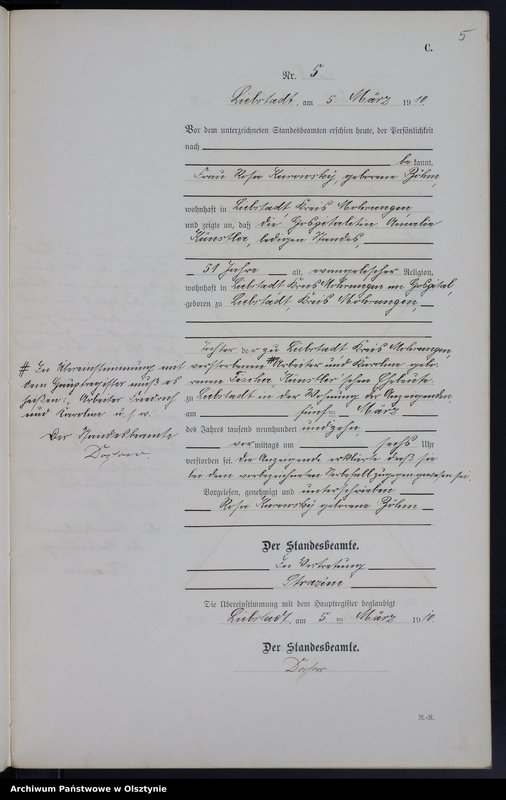 5
C.
Nr. 5.
Liebstadt, am 5. März 1910.
Vor dem unterzeichneten Standesbeamten erschien heute, der Persönlichkeit
nach
be kannt,
Frau Rosa Kurowsky, geborene Böhm,
wohnhaft in Liebstadt Kreis Mohrungen
und zeigte an, daß die Hospitalitin Amalie
Künstler, ledigen Standes,
51 Jahre alt, evangelischer Religion,
wohnhaft in Liebstadt Kreis Mohrungen im Hospital,
geboren zu Liebstadt, Kreis Mohrungen,
Tochter der zu Liebstadt Kreis Mohrungen,
verstorbenen # Arbeiter und Karoline gebo-
renen Fischer, Künstler'schen Eheleute
zu Liebstadt in der Wohnung der Anzeigenden,
am fünften März
des Jahres tausend neunhundert und zehn,
vor mittags um sechs Uhr
verstorben sei. Die Anzeigende erklärte daß sie
bei dem verzeichneten Sterbefall zugegen gewesen sei.
Vorgelesen, genehmigt und unterschrieben
Rosa Kurowsky geborene Böhm
Der Standesbeamte.
In Vertretung
Die Übereinstimmung mit dem Hauptregister beglaubigt
Liebstadt, am 5. ten März 1910.
Der Standesbeamte.
# In Übereinstimmung mit
dem Hauptregister muß es
heißen: Arbeiter Friedrich
und Karoline u. s. w.
Der Standesbeamte
R.-R.
Archiwum Państwowe w Olsztynie